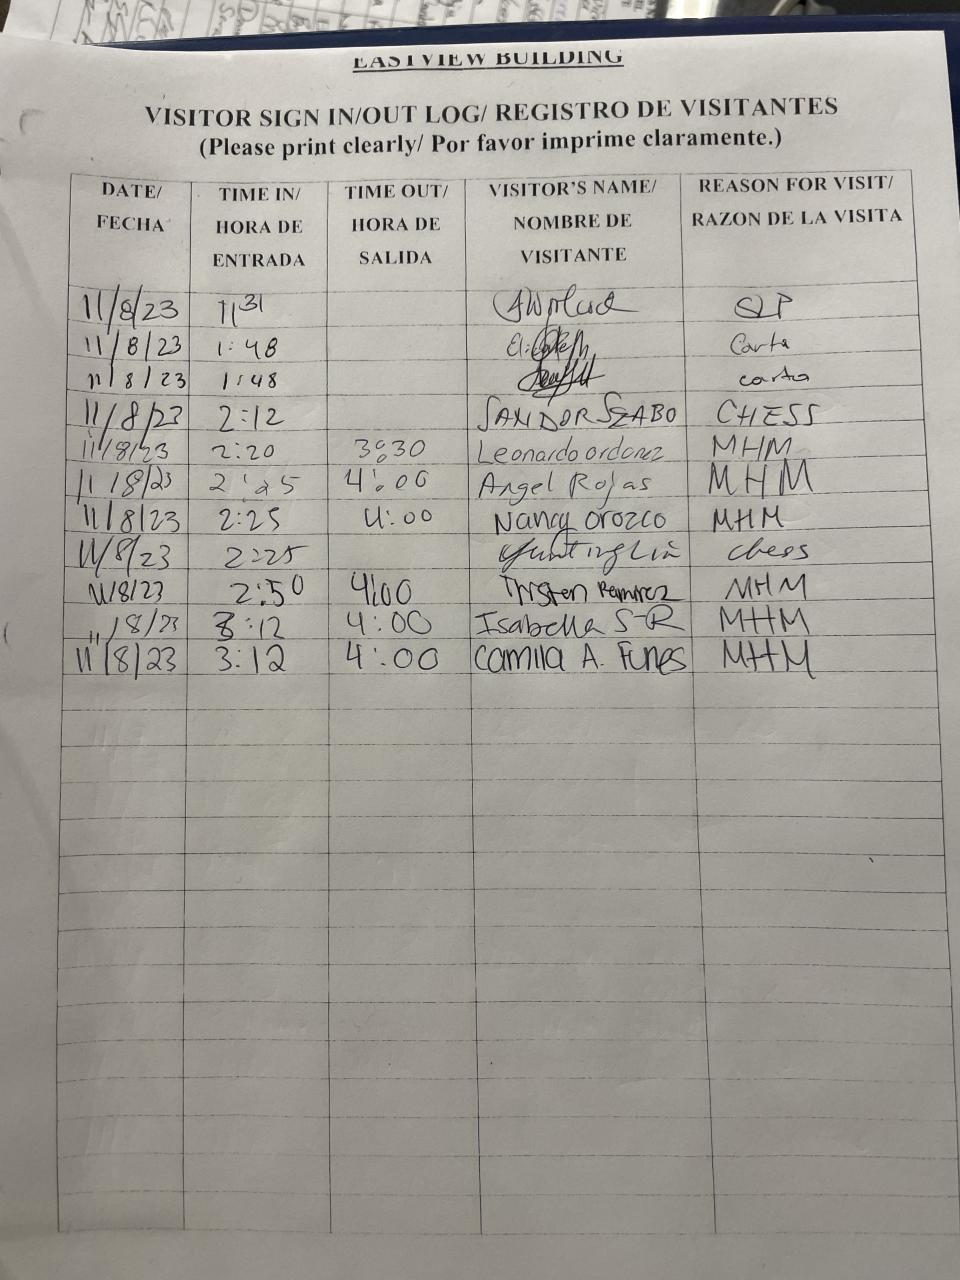 EASTVIEW BUILDING
VISITOR SIGN IN/OUT LOG/ REGISTRO DE VISITANTES
(Please print clearly/ Por favor imprime claramente.)
DATE/ FECHA TIME IN/ HORA DE ENTRADA TIME OUT/ HORA DE SALIDA VISITOR'S NAME/ NOMBRE DE VISITANTE REASON FOR VISIT/ RAZON DE LA VISITA
11/8/23 11:31 SLP
11/8/23 1:48 Carta
11/8/23 1:48 carta
11/8/23 2:12 SANDOR SZABO CHESS
11/8/23 2:20 3:30 Leonardo ordonez MHM
11/8/23 2:25 4:00 Angel Rojas MHM
11/8/23 2:25 4:00 Nancy Orozco MHM
11/8/23 2:25 Yunting Lin chess
11/8/23 2:50 4:00 Ramirez MHM
11/8/23 3:12 4:00 Isabella S-R MHM
11/8/23 3:12 4:00 Camila A. Funes MHM